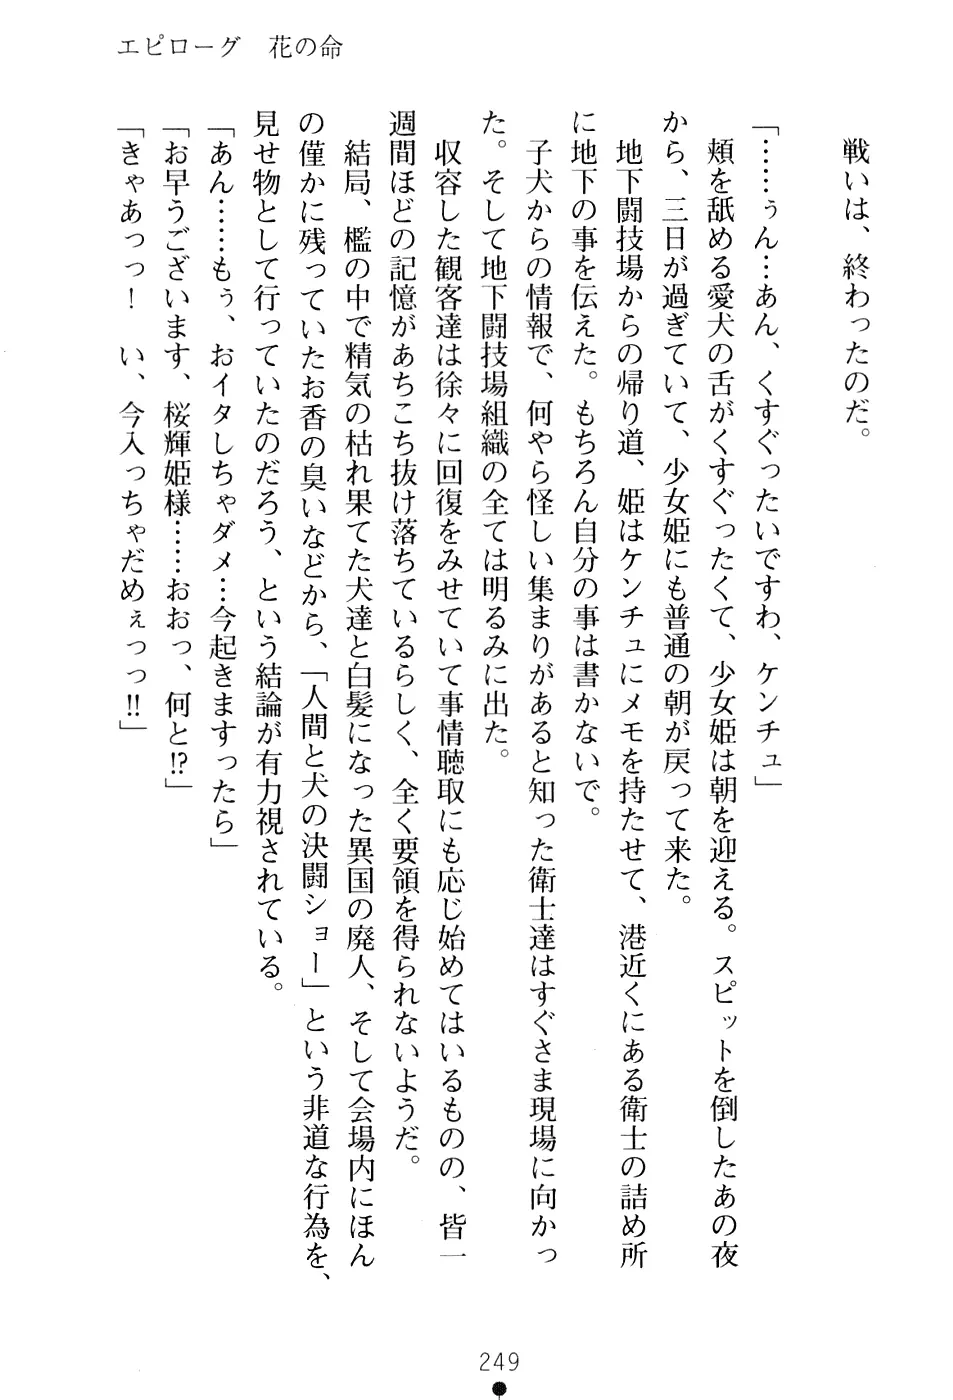 エピローグ　花の命
戦いは、終わったのだ。
「……ぅん…あん、くすぐったいですわ、ケンチュ」
頬を舐める愛犬の舌がくすぐったくて、少女姫は朝を迎える。スピットを倒したあの夜
から、三日が過ぎていて、少女姫にも普通の朝が戻って来た。
地下闘技場からの帰り道、姫はケンチュにメモを持たせて、港近くにある衛士の詰め所
に地下の事を伝えた。もちろん自分の事は書かないで。
子犬からの情報で、何やら怪しい集まりがあると知った衛士達はすぐさま現場に向かっ
た。そして地下闘技場組織の全ては明るみに出た。
収容した観客達は徐々に回復をみせていて事情聴取にも応じ始めてはいるものの、皆一
週間ほどの記憶があちこち抜け落ちているらしく、全く要領を得られないようだ。
結局、檻の中で精気の枯れ果てた犬達と白髪になった異国の廃人、そして会場内にほん
の僅かに残っていたお香の臭いなどから、「人間と犬の決闘ショー」という非道な行為を、
見せ物として行っていたのだろう、という結論が有力視されている。
「あん……もぅ、おイタしちゃダメ…今起きますったら」
「お早うございます、桜輝姫様……おおっ、何と!?」
「きゃあっっ！　い、今入っちゃだめぇっっ!!」
249